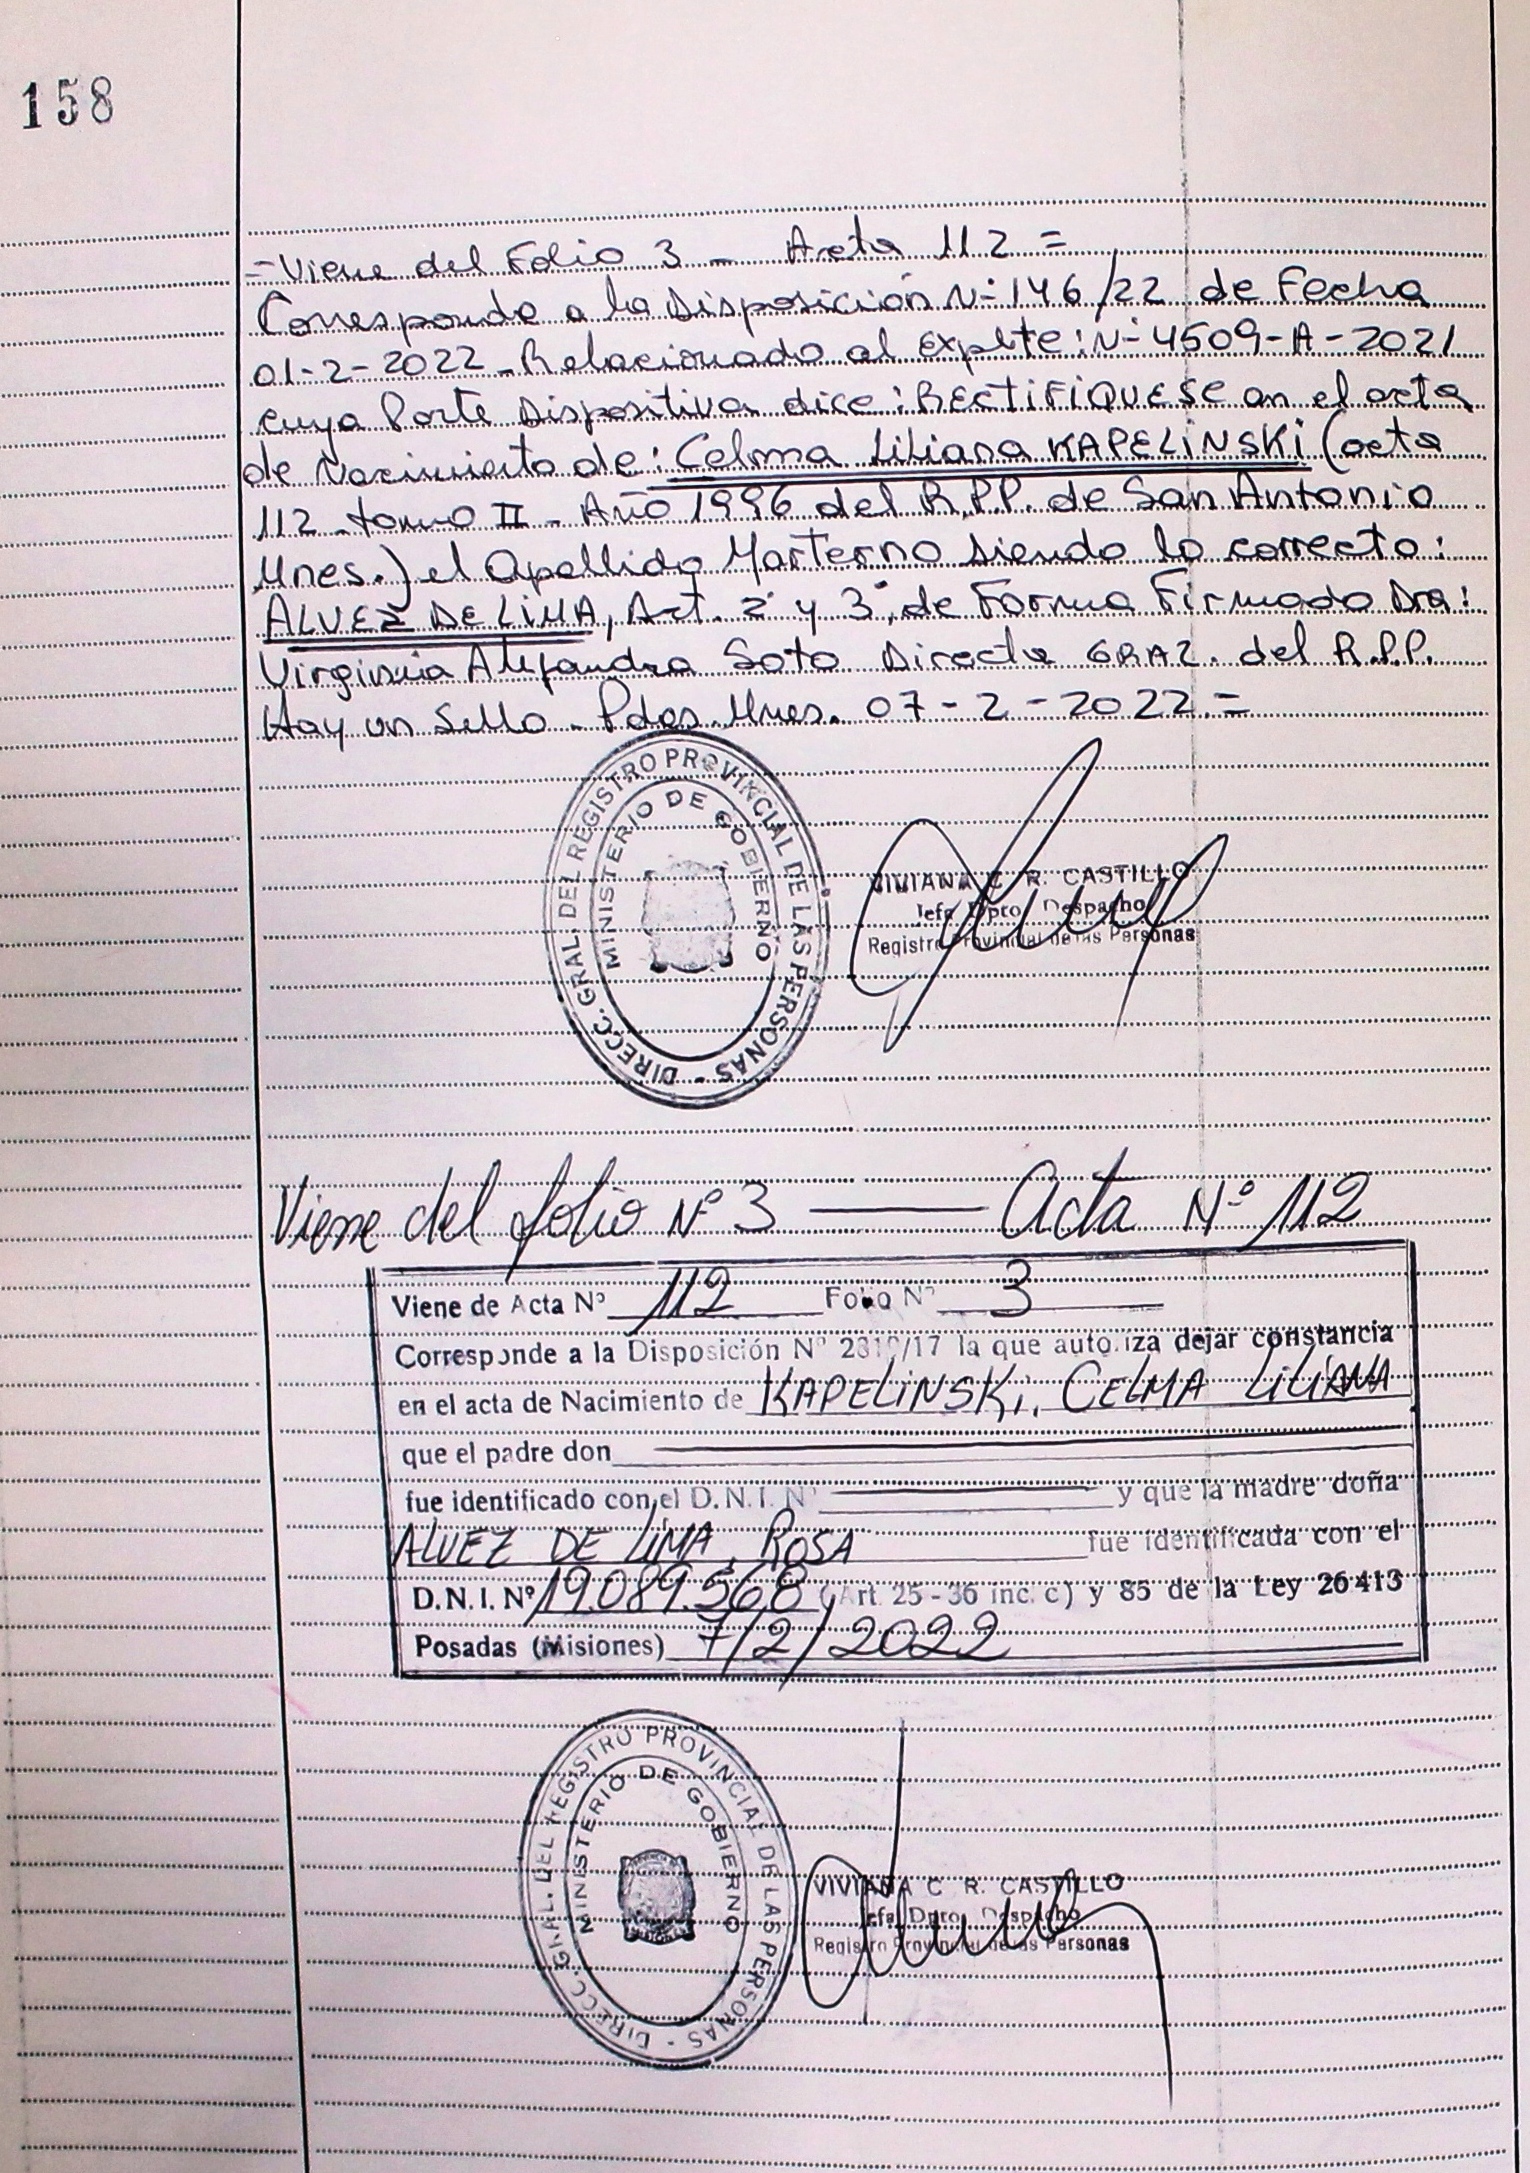 158
=Viene del Folio 3 - Acta 112=
Corresponde a la Disposición N° 146/22 de Fecha
01-2-2022-Relacionado al Expte: N° 4509-A-2021
cuya Parte Dispositiva dice: RECTIFIQUESE en el acta
de Nacimiento de: Celma Liliana KAPELINSKI (acta
112 - tomo II - Año 1996 del R.P.P. de San Antonio
Mnes.) el Apellido Marterno siendo lo correcto:
ALVEZ DE LIMA, Art. 2° y 3°, de Forma Firmado Dra:
Virginia Alejandra Soto Directa GRAL. del R.P.P.
Hay un Sello - Pdas. Mnes. 07-2-2022.=
DIRECC. GRAL. DEL REGISTRO PROVINCIAL DE LAS PERSONAS -
MINISTERIO DE GOBIERNO
VIVIANA C R. CASTILLO
Jefa Dpto Despacho
Registro Provincial de las Personas
Viene del folio N° 3 — Acta N° 112
Viene de Acta N° 112 Folio N° 3
Corresponde a la Disposición N° /17 la que autoriza dejar constancia
en el acta de Nacimiento de KAPELINSKI, CELMA LILIANA
que el padre don
fue identificado con el D.N.I. N° y que la madre doña
ALVEZ DE LIMA, ROSA fue identificada con el
D.N.I. Nº 19.089.568 (Art. 25 - 36 inc. c) y 85 de la Ley 26413
Posadas (Misiones) 7/2/2022
DIRECC. GRAL. DEL REGISTRO PROVINCIAL DE LAS PERSONAS -
MINISTERIO DE GOBIERNO
VIVIANA C R. CASTILLO
Jefa Dpto. Despacho
Registro Provincial de las Personas